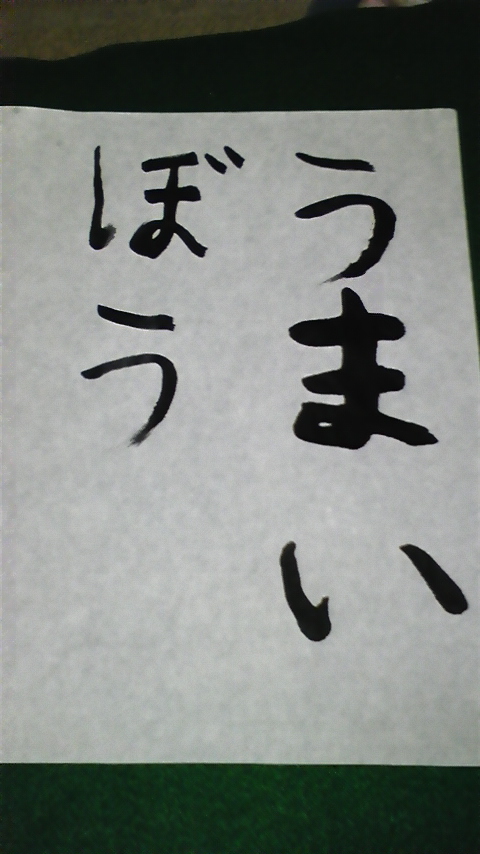 うまい
ぼう